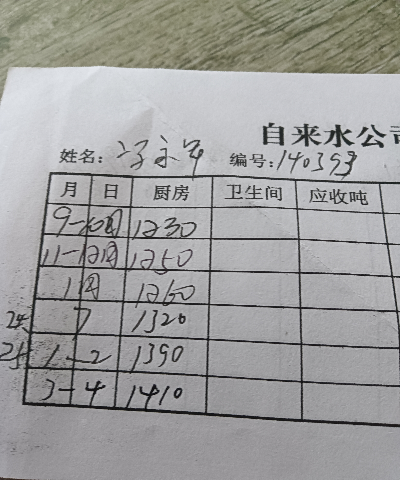 自来水公司
姓名: 冯永军 编号: 140393
月 日 厨房 卫生间 应收吨
9-10月 1230
11-12月 1250
1月 1260
24 7 1320
25 1-2 1390
3-4 1410